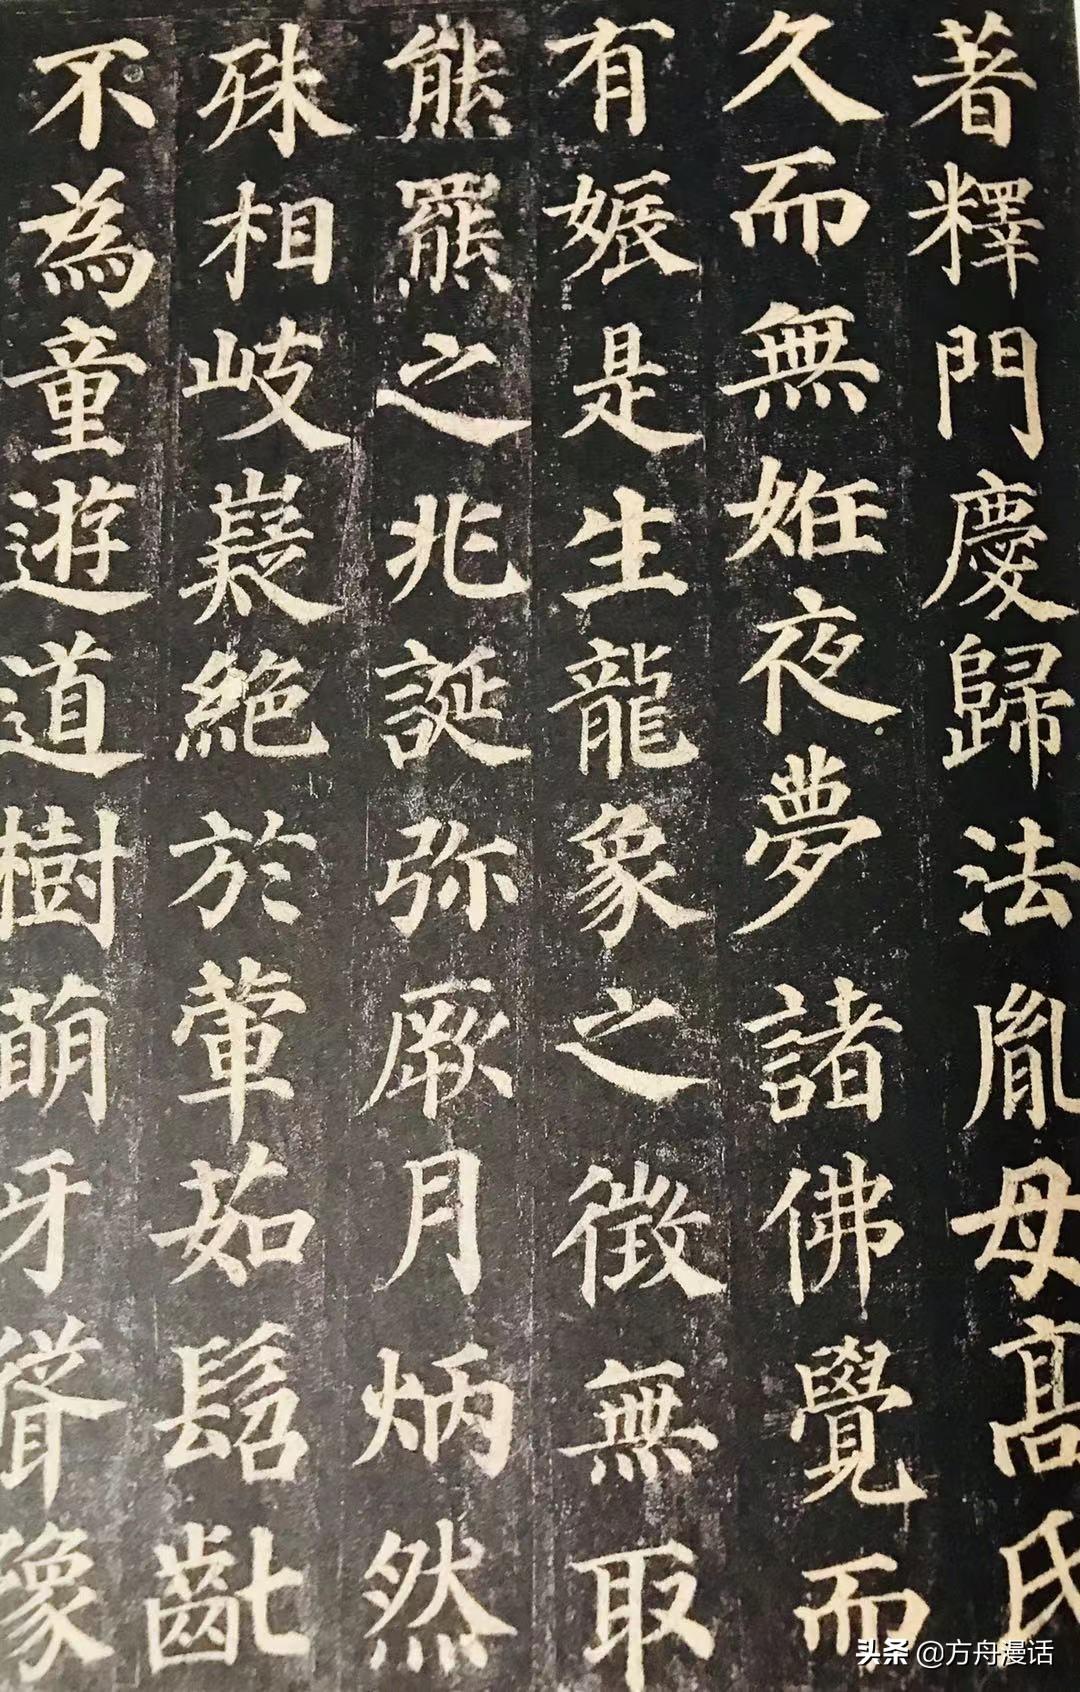 著釋門慶歸法胤母髙氏
久而無妊夜夢諸佛覺而
有娠是生龍象之徵無取
熊羆之兆誕弥厥月炳然
殊相岐嶷絕於葷茹髫齔
不為童遊道樹萌牙聳豫
头条 @方舟漫话